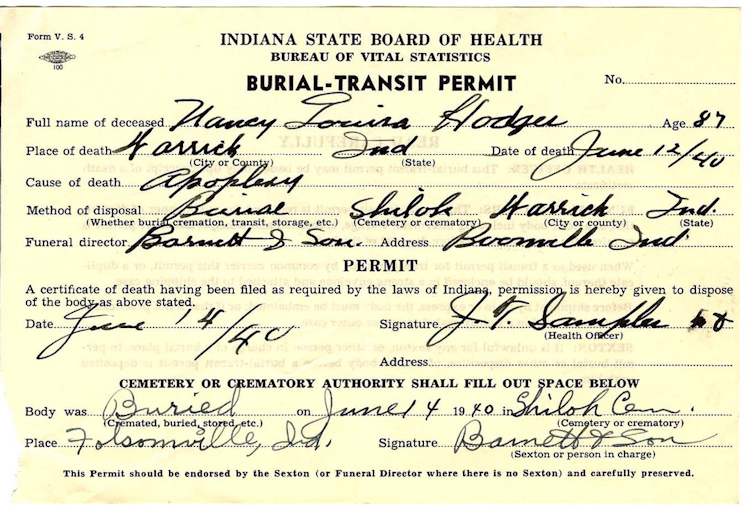 Form V. S. 4
100
INDIANA STATE BOARD OF HEALTH
BUREAU OF VITAL STATISTICS
BURIAL-TRANSIT PERMIT
No.
Full name of deceased Nancy Louisa Hodges Age 87
Place of death Warrick Ind Date of death June 12/40
(City or County) (State)
Cause of death Apoplexy
Method of disposal Burial Shiloh Warrick Ind.
(Whether burial, cremation, transit, storage, etc.) (Cemetery or crematory) (City or county) (State)
Funeral director Barnett & Son Address Boonville Ind
PERMIT
A certificate of death having been filed as required by the laws of Indiana, permission is hereby given to dispose
of the body as above stated.
Date June 14/40 Signature J. T. Samples
(Health Officer)
Address
CEMETERY OR CREMATORY AUTHORITY SHALL FILL OUT SPACE BELOW
Body was Buried on June 14 1940 in Shiloh Cem.
(Cremated, buried, stored, etc.) (Cemetery or crematory)
Place Folsomville, Ind. Signature Barnett & Son
(Sexton or person in charge)
This Permit should be endorsed by the Sexton (or Funeral Director where there is no Sexton) and carefully preserved.